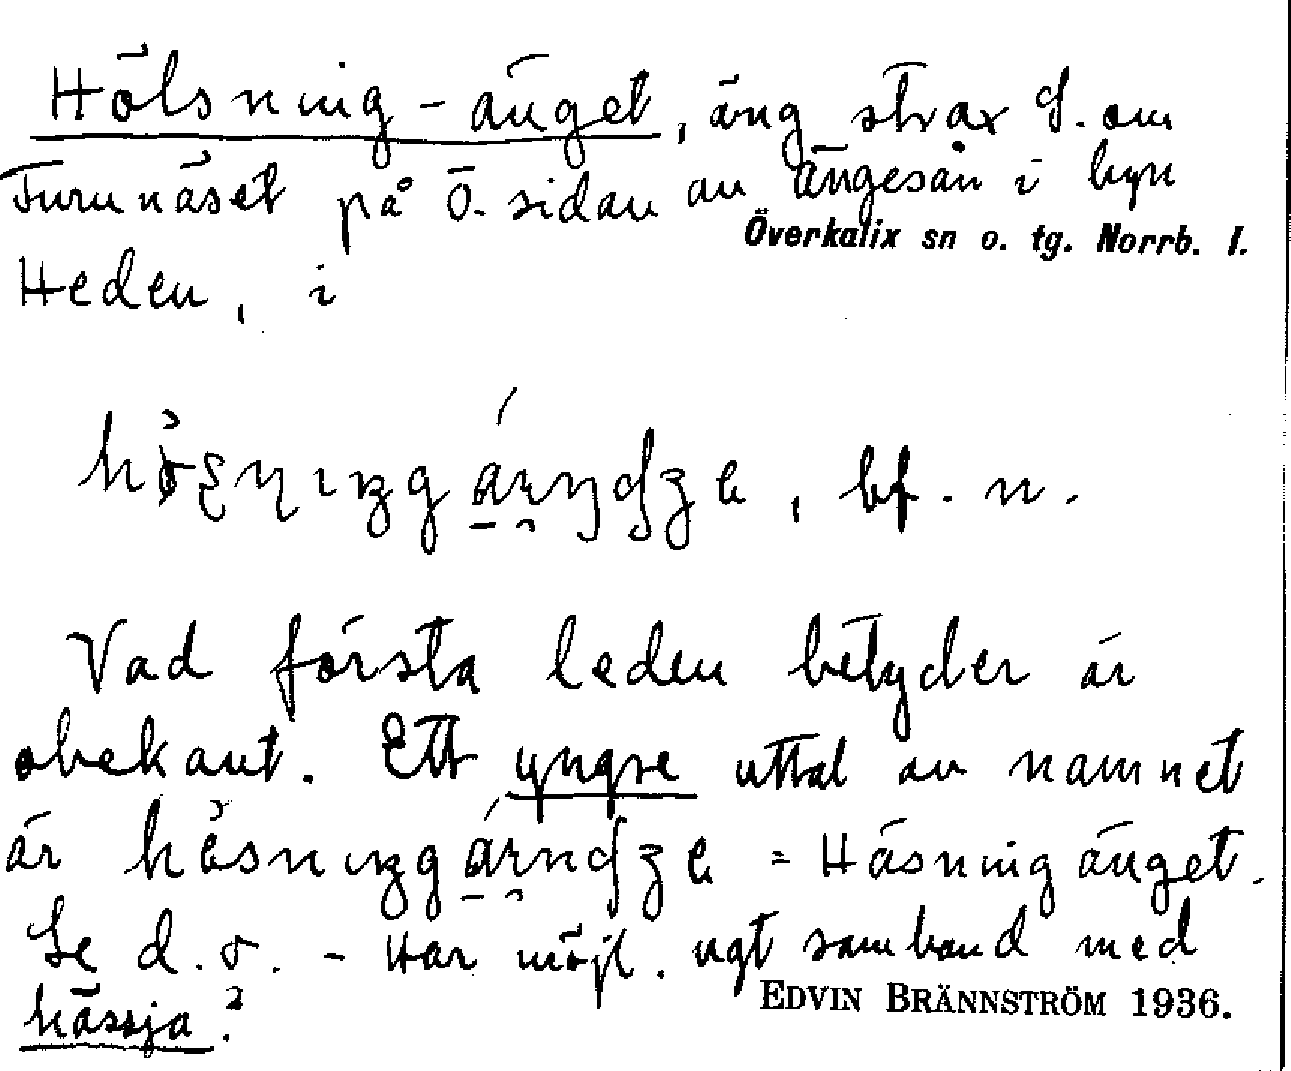 Hölsning-änget, äng strax S. om
Furunäset på Ö. sidan av Ängesån i byn
Överkalix sn o. tg. Norrb. l.
Heden, i
, bf. n.
Vad första leden betyder är
obekant. Ett yngre uttal av namnet
är = Häsningänget.
Se d. o. - Har möjl. ngt samband med
hässja?
EDVIN BRÄNNSTRÖM 1936.